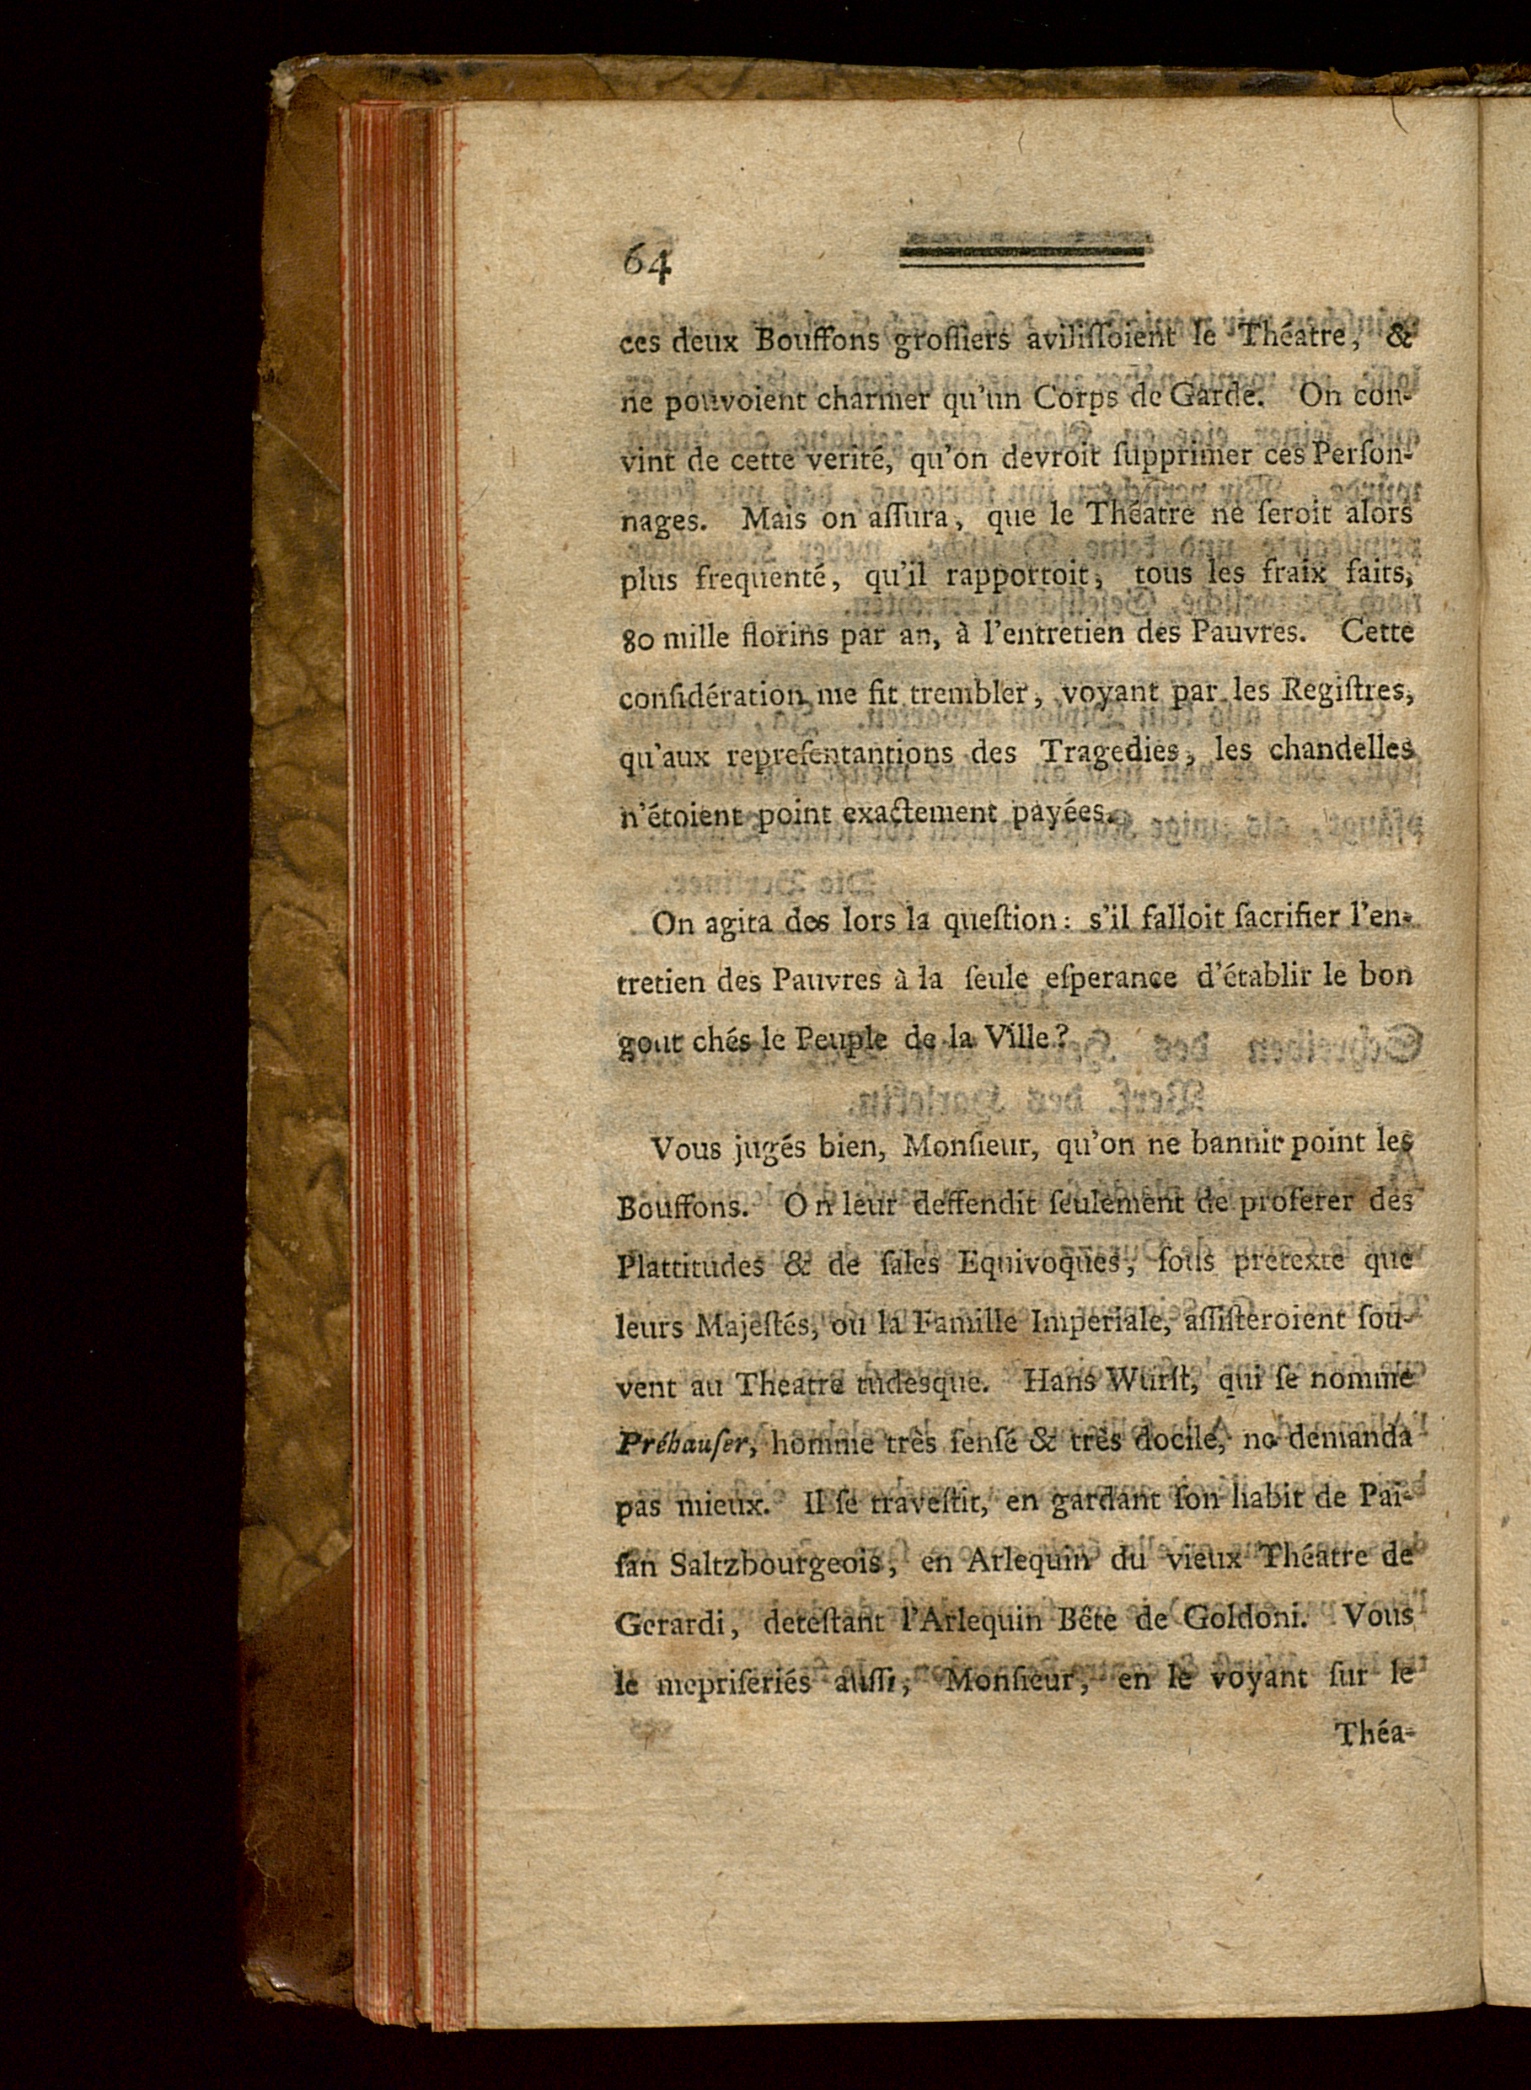 64
ces deux Bouffons groſſiers aviliſſoient le Théatre, &
ne pouvoient charmer qu'un Corps de Garde. On con-
vint de cette verité, qu'on devroit ſupprimer ces Perſon-
nages. Mais on aſſura, que le Théatre ne ſeroit alors
plus frequenté, qu'il rapportoit, tous les fraix faits,
80 mille florins par an, à l'entretien des Pauvres. Cette
conſidération me fit trembler, voyant par les Regiſtres,
qu'aux repreſentantions des Tragedies, les chandelles
n'étoient point exactement payées.
On agita des lors la queſtion: s'il falloit ſacrifier l'en-
tretien des Pauvres à la ſeule eſperance d'établir le bon
gout chés le Peuple de la Ville?
Vous jugés bien, Monſieur, qu'on ne bannit point les
Bouffons. On leur deffendit ſeulement de proferer des
Plattitudes & de ſales Equivoques, ſous pretexte que
leurs Majeſtés, ou la Famille Imperiale, aſſiſteroient ſou-
vent au Theatre tudesque. Hans Wurſt, qui ſe nomme
Préhauſer, homme très ſenſé & très docile, ne demanda
pas mieux. Il ſe traveſtit, en gardant ſon habit de Paï-
ſan Saltzbourgeois, en Arlequin du vieux Théatre de
Gerardi, deteſtant l'Arlequin Bête de Goldoni. Vous
le mepriſeriés auſſi, Monſieur, en le voyant ſur le
Théa-